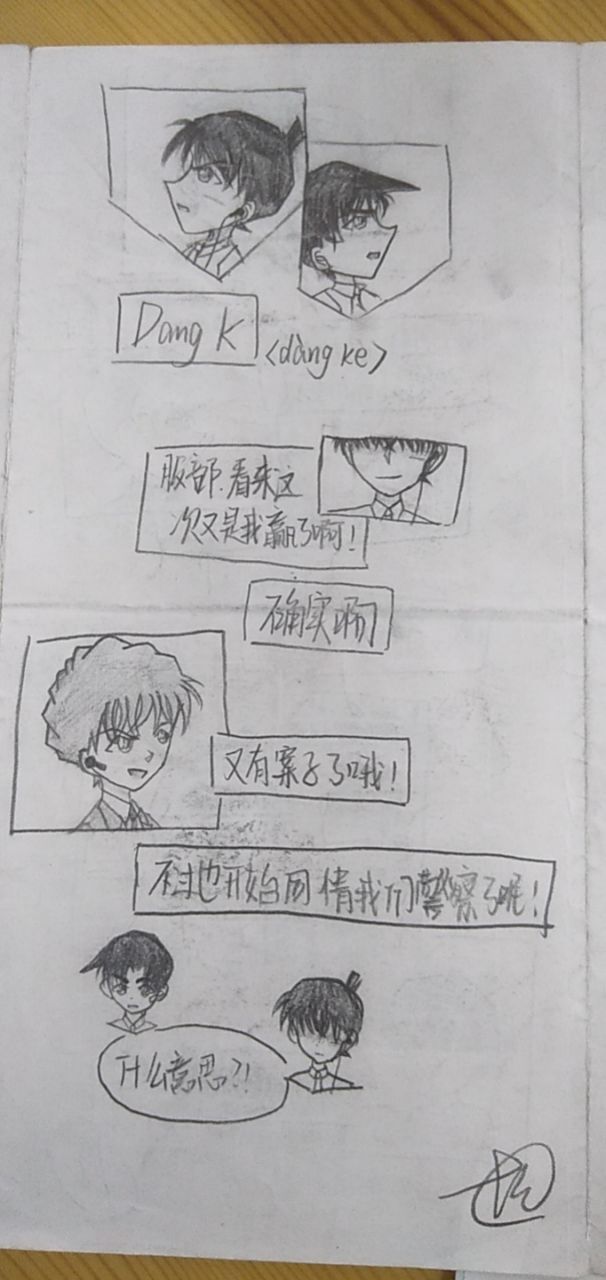 Dang K
<dàng ke>
服部.看来这
次又是我赢了啊!
确实啊
又有案子了哦!
不过也开始同情我们警察了呢!
什么意思?!